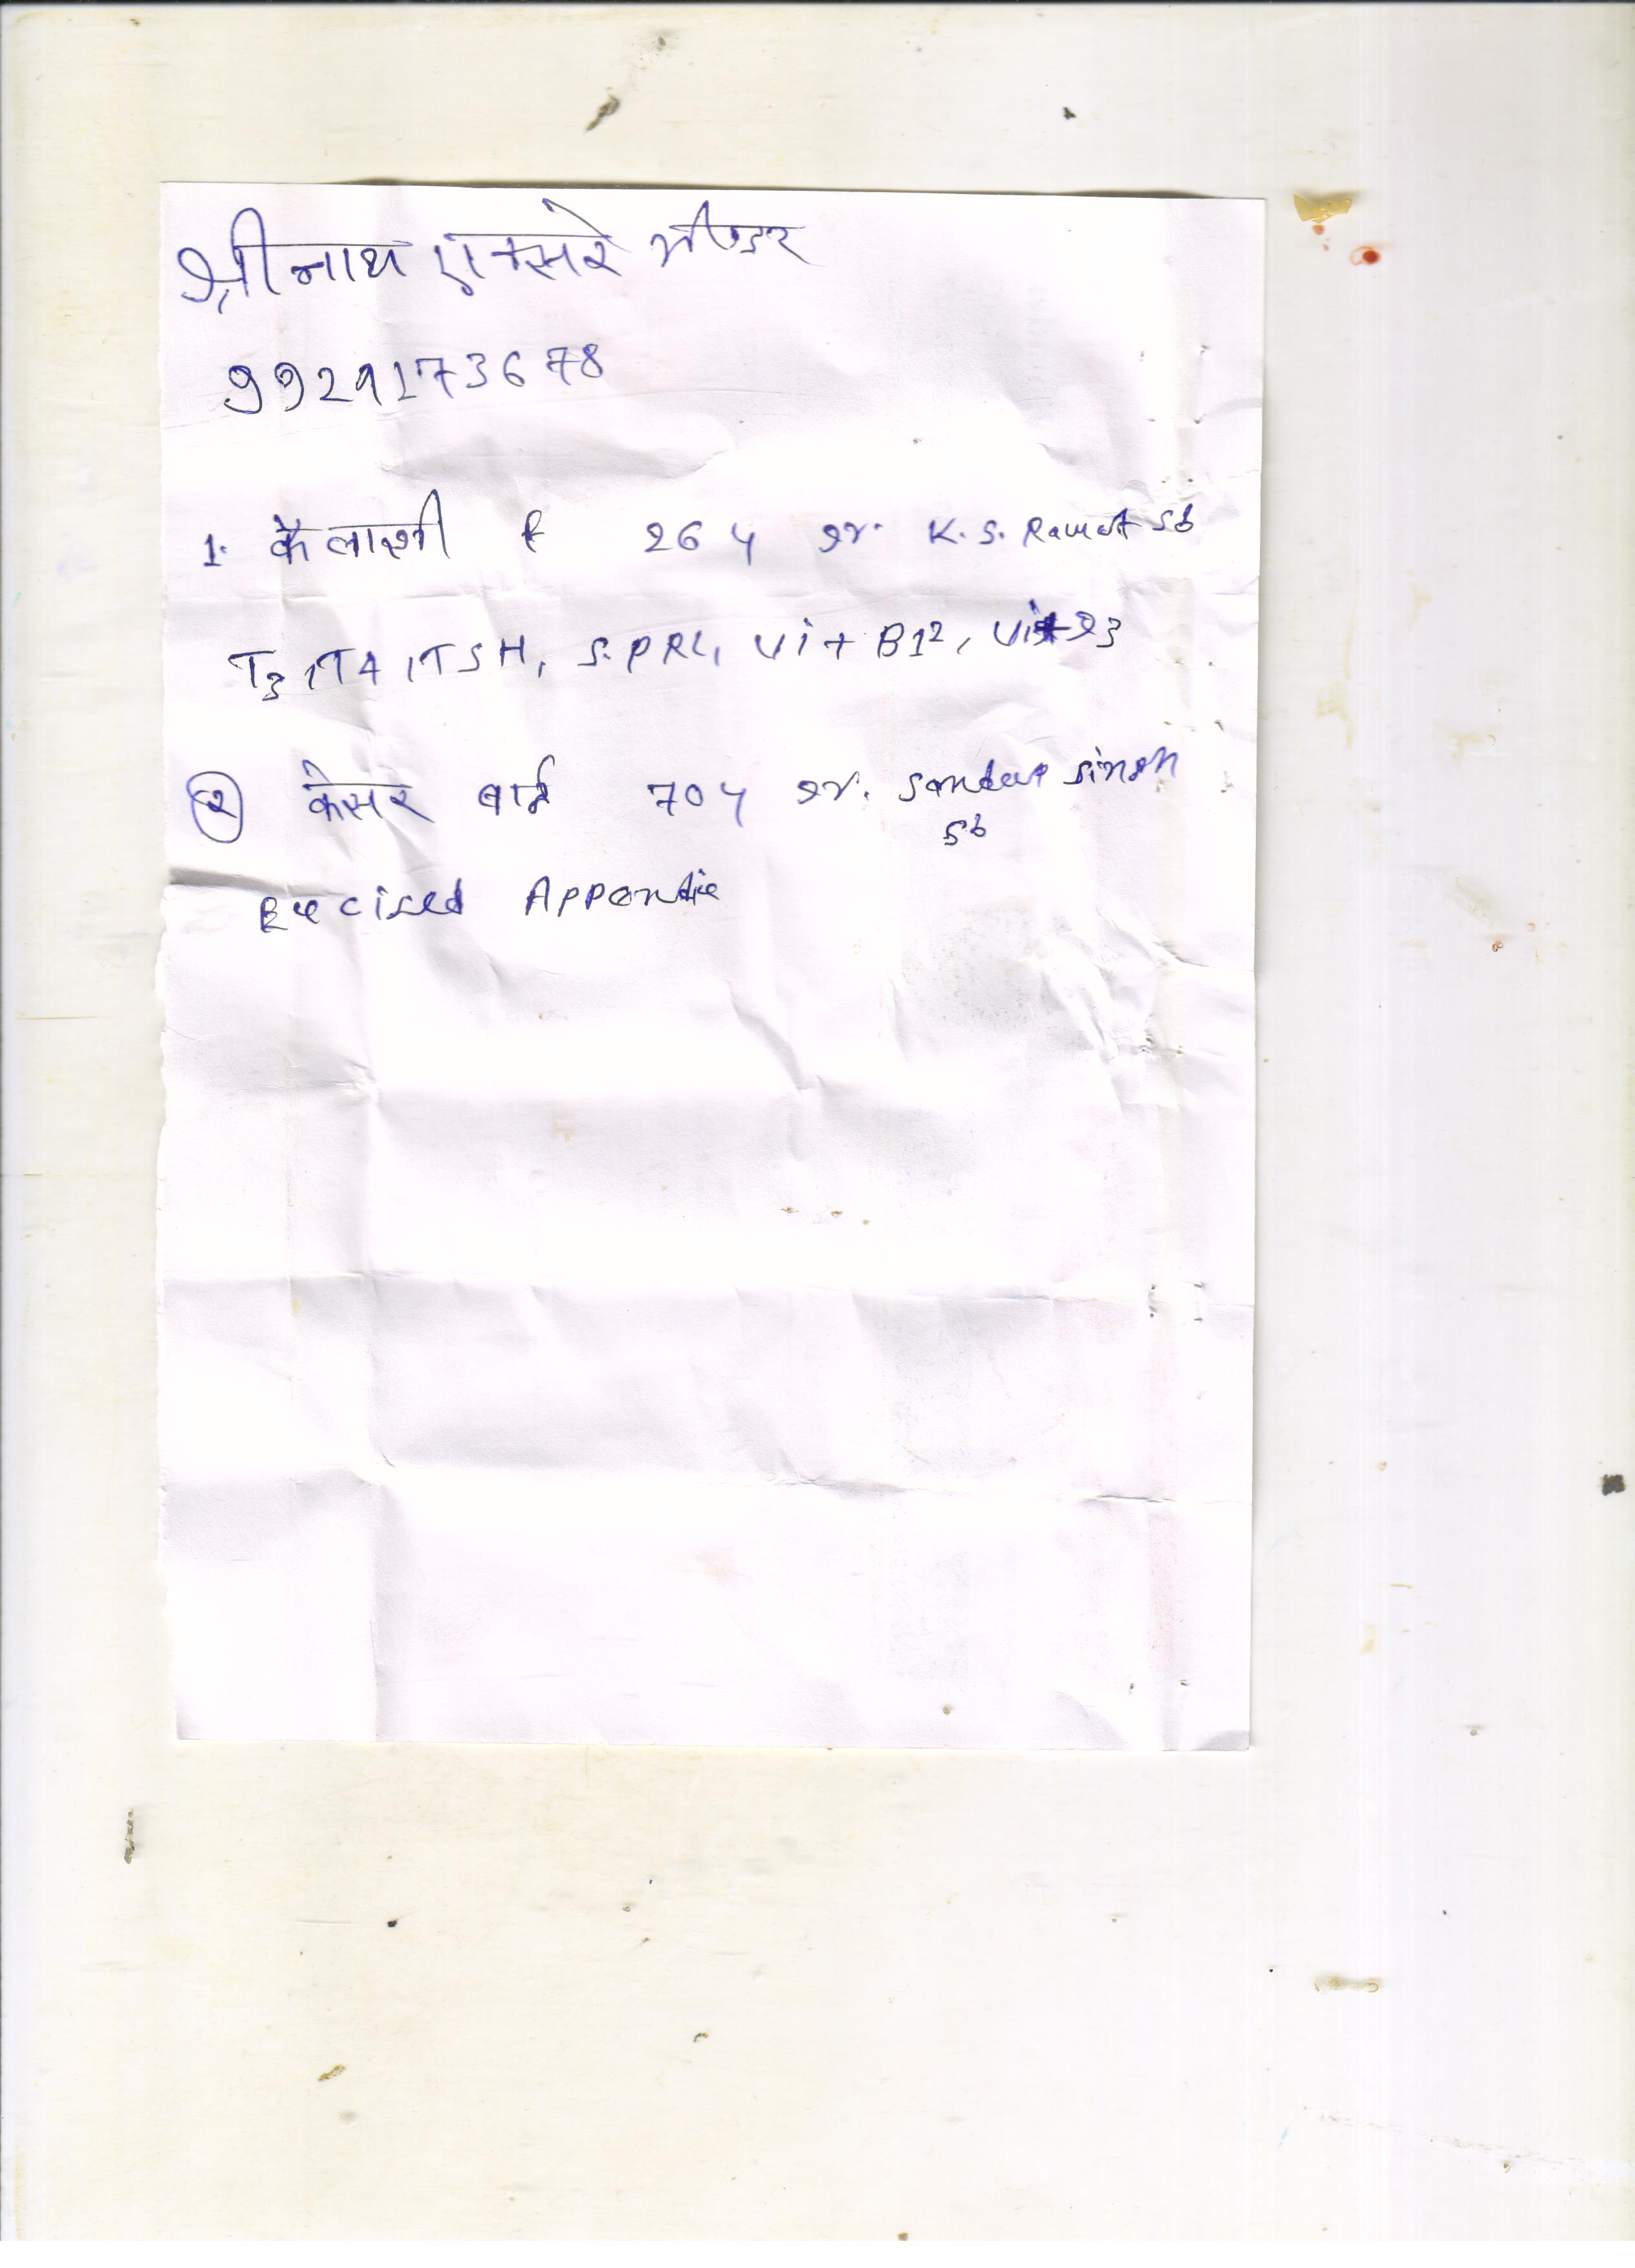 श्रीनाथ एक्सरे भीण्डर
9929173678
1. कैलाशी F 26 Y Dr. K. S. Rawat Sb
T3, T4, TSH, S. PRL, Vit B12, Vit D3
(2) केसर बाई 70 Y Dr. Sandeep Singh
Sb
Excised Appendix